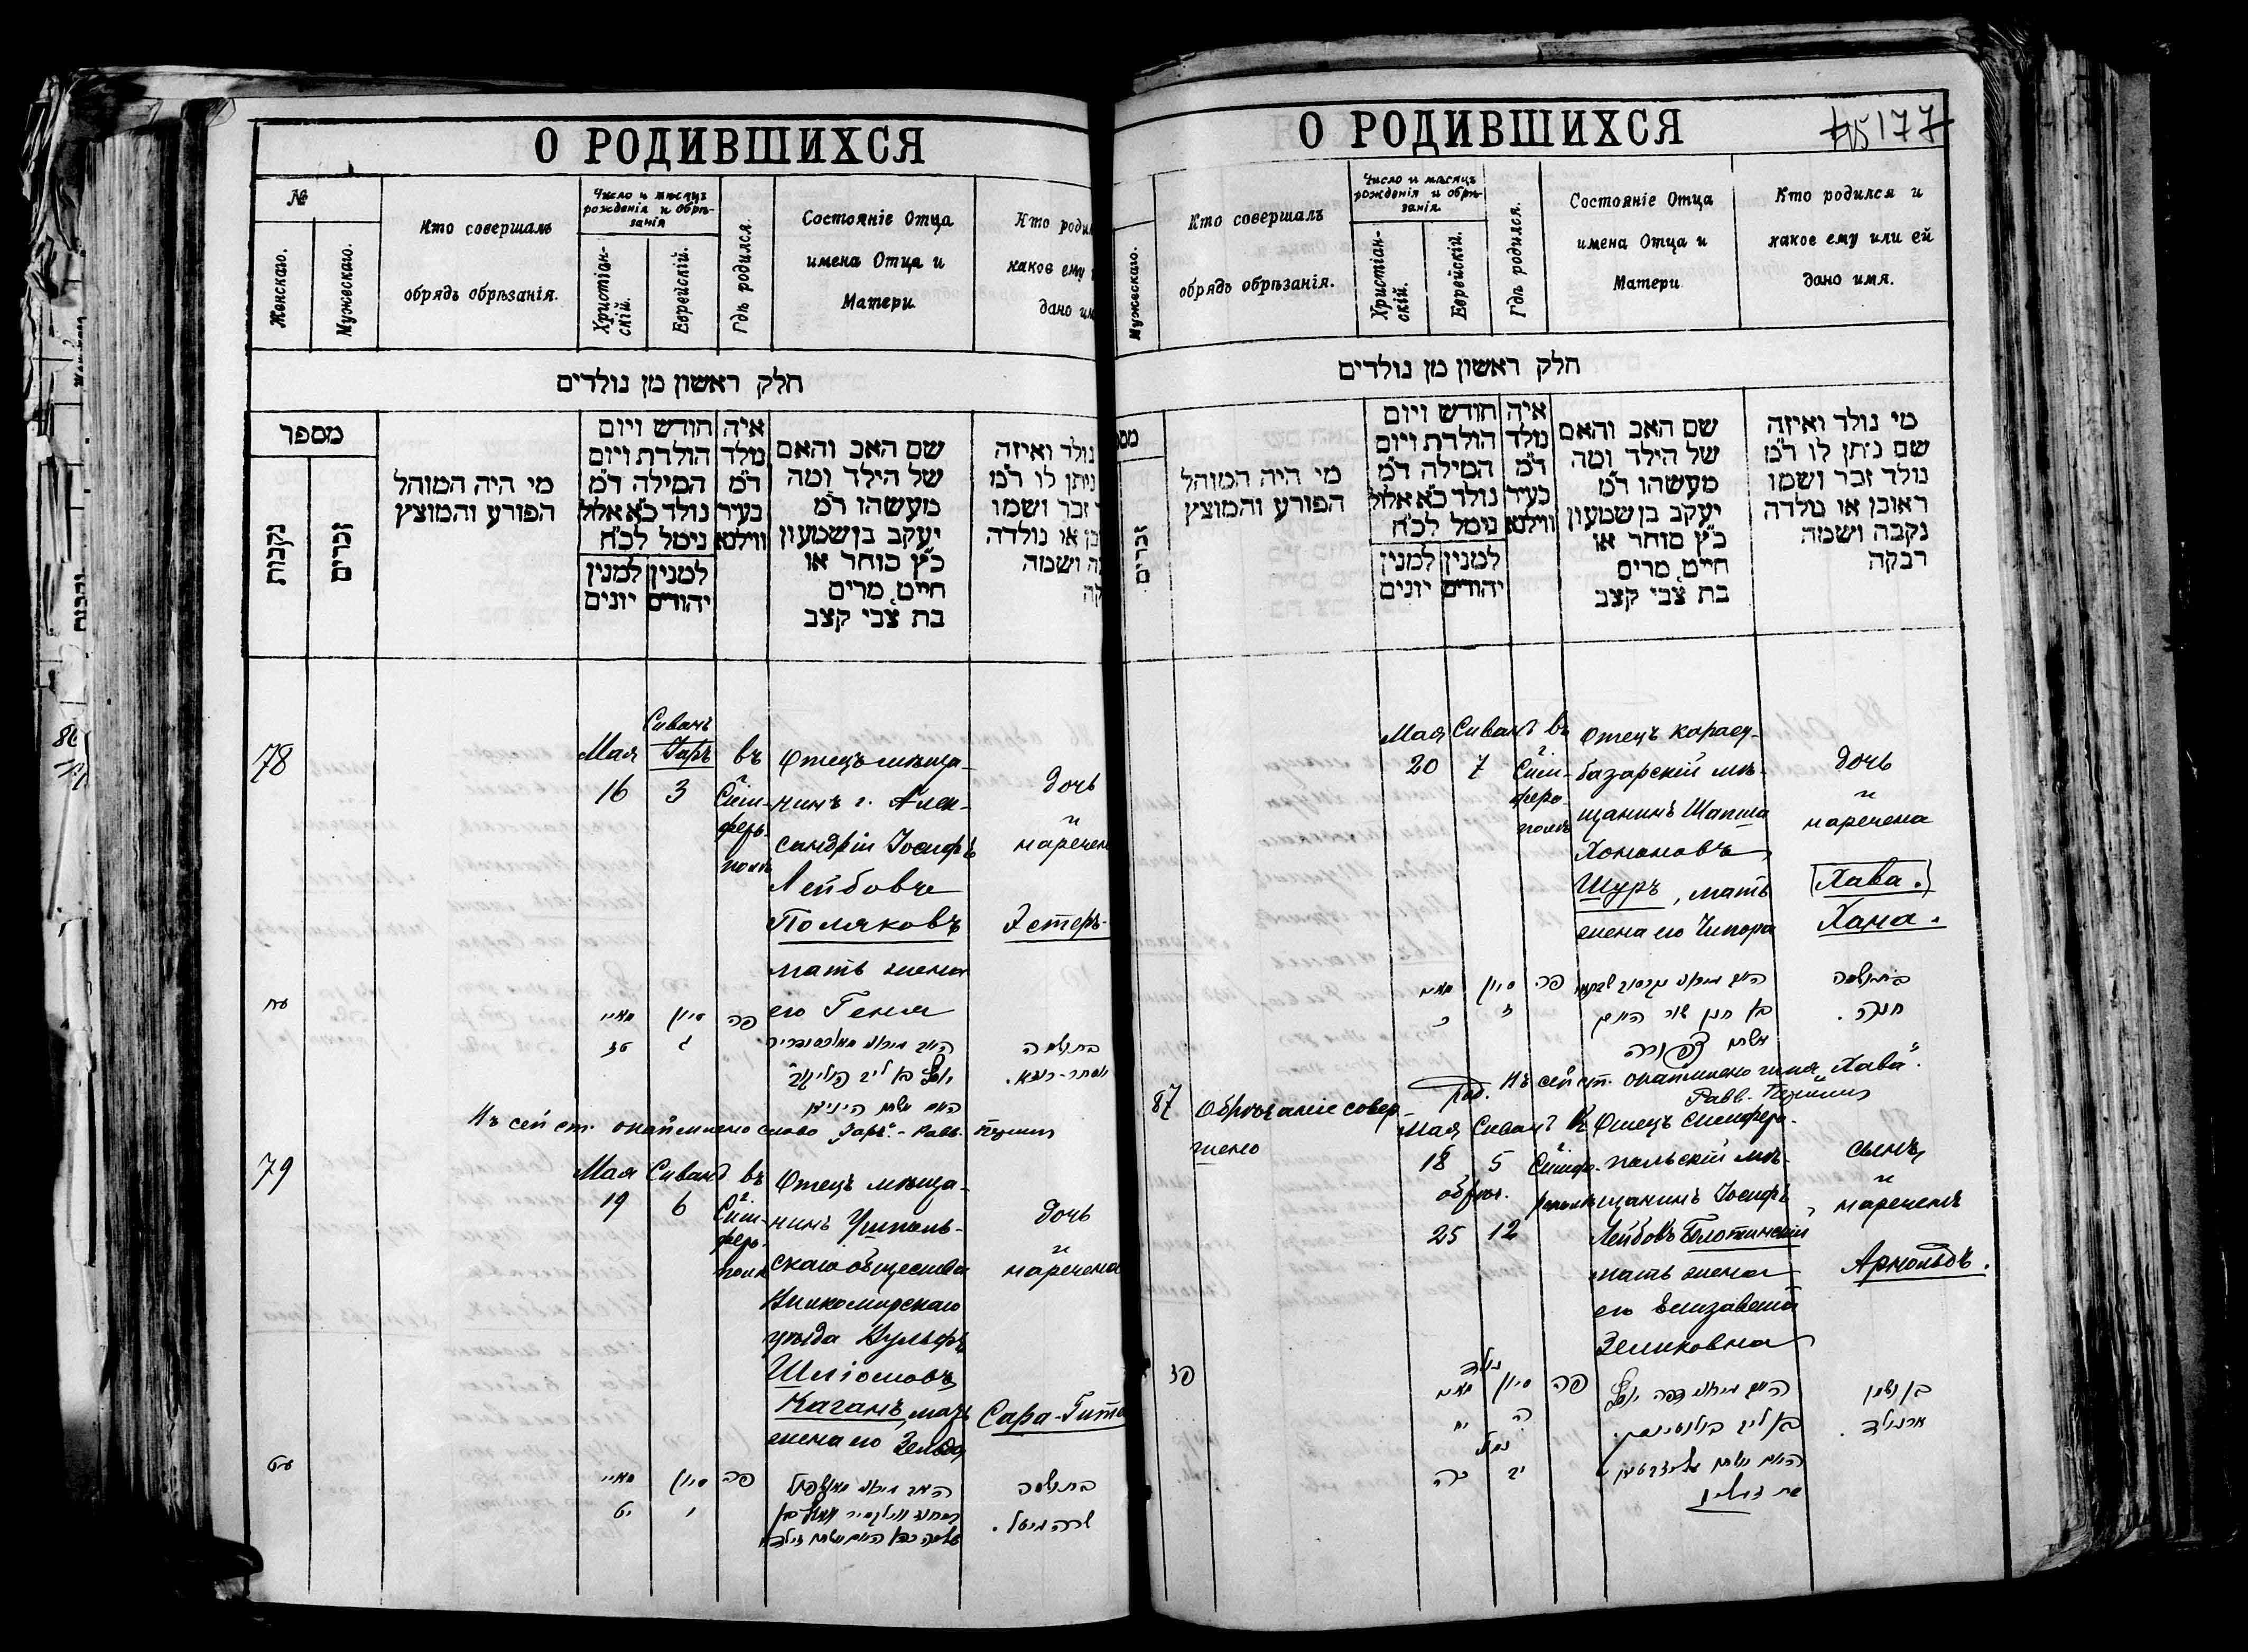 О РОДИВШИХСЯ
№
Женскаго.
Мужескаго.
Кто совершалъ
обрядъ обрѣзанія.
Число и мѣсяцъ
рожденія и обрѣ-
занія
Христіан-
скій.
Еврейскій.
Гдѣ родился.
Состояніе Отца
имена Отца и
Матери
Кто роди
какое ему
дано им
חלק ראשון מן נולדים
מספר
נקבות
זכרים
מי היה המוהל
הפורע והמוצץ
חודש ויום
הולדת ויום
המילה ד״מ
נולד כ״א אלול
נימל לכ״ח
למנין למנין
יהודים יונים
איה
מלד
ד״מ
בעיר
ווילנא
שם האב והאם
של הילד ומה
מעשהו ד״מ
יעקב בן שמעון
כ״ץ סוחר או
חייט, מרים
בת צבי קצב
נולד ואיזה
ניתן לו ד״מ
זכר ושמו
בן או נולדה
ה ושמה
קה
78
Мая
16
Сиванъ
Іаръ
3
въ
г.
Сим-
феро-
полѣ
Отецъ мѣща-
нинъ г. Алек-
сандріи Іосифъ
Лейбовъ
Поляковъ
мать жена
его Геня
дочь
и
наречен
Эстеръ-
עח
מאיי
טז
סיון
ג
פה
בת ושמה
Въ сей ст. оказ слово „Іаръ“. - Равв.
79
Мая
19
Сиванъ
6
въ
г.
Сим-
феро-
полѣ
Отецъ мѣща-
нинъ Ушполь-
скаго общества
Вилкомірскаго
уѣзда Вульфъ
Шліомовъ
Каганъ, мать
жена его Зельда
дочь
и
наречена
Сара-Гита
עט
מאיי
יט
סיון
ו
פה
בת ושמה
שרה גיטל .
О РОДИВШИХСЯ
177
Мужескаго.
Кто совершалъ
обрядъ обрѣзанія.
Число и мѣсяцъ
рожденія и обрѣ-
занія.
Христіан-
скій.
Еврейскій.
Гдѣ родился.
Состояніе Отца
имена Отца и
Матери
Кто родился и
какое ему или ей
дано имя.
חלק ראשון מן נולדים
זכרים
מי היה המוהל
הפורע והמוצץ
חודש ויום
הולדת ויום
המילה ד״מ
נולד כ״א אלול
נימל לכ״ח
למנין למנין
יהודים יונים
איה
מלד
ד״מ
בעיר
ווילנא
שם האב והאם
של הילד ומה
מעשהו ד״מ
יעקב בן שמעון
כ״ץ סוחר או
חייט, מרים
בת צבי קצב
מי נולד ואיזה
שם ניתן לו ד״מ
נולד זכר ושמו
ראובן או נולדה
נקבה ושמה
רבקה
Мая
20
Сиванъ
7
въ
г.
Сим-
феро-
полѣ
Отецъ карасу-
базарскій мѣ-
щанинъ Шапша
Хонановъ
Шуръ, мать
жена его Ципора
дочь
и
наречена
Хава.
Хана.
מאיי
כ
סיון
ז
פה
בן חנן שור
אשתו צפורה
בת ושמה
חנה .
Въ сей ст. имя „Хава“.
Равв.
87
Обрѣзаніе совер-
шено
род.
Мая
18
обрѣз.
25
Сиванъ
5
12
въ
г.
Симфе-
рополѣ
Отецъ симферо-
польскій мѣ-
щанинъ Іосифъ
Лейбовъ Болотинскій
мать жена
его Елизавета
Зеликовна
сынъ
и
нареченъ
Арнольдъ.
פז
נולד
מאיי
יח
סיון
ה
נמול
כה
יב
פה
בן ושמו
ארנולד .